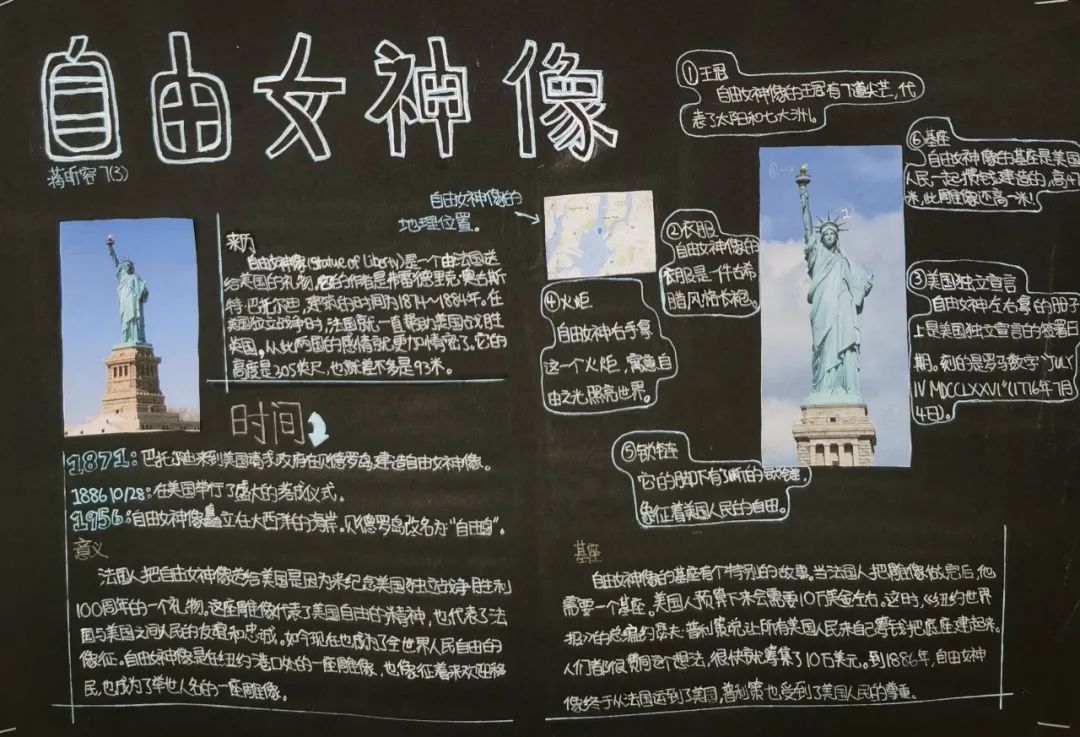 自由女神像
蒋昕容 7(3)
来历
自由女神像(Statue of Liberty)是一个由法国送
给美国的礼物。它的作者是弗雷德里克·奥古斯
特·巴托尔迪,建筑的时间为1874～1884年。在
美国独立战争时,法国就一直帮助美国战胜
英国,从此两国的感情就更加情密了。它的
高度是305英尺,也就差不多是93米。
自由女神像的
地理位置。
①王冠
自由女神像的王冠有7道光芒,代
表了太阳和七大洲。
②衣服
自由女神像的
衣服是一件古希
腊风格长袍。
⑥基座
自由女神像的基座是美国
人民一起攒钱建造的,高47
米,比雕像还高一米!
③美国独立宣言
自由女神左右拿的册子
上是美国独立宣言的签署日
期。刻的是罗马数字"JULY
IV MDCCLXXVI"(1776年7月
4日)。
④火炬
自由女神右手拿
这一个火炬,寓意自
由之光照亮世界。
⑤锁链
它的脚下有了断的锁链,
象征着美国人民的自由。
时间
1871:巴托尔迪来到美国请求政府在贝德罗岛建造自由女神像。
1886 10/28:在美国举行了盛大的落成仪式。
1956:自由女神像矗立在大西洋的海岸。贝德罗岛改名为"自由岛"。
意义
法国人把自由女神像送给美国是因为来纪念美国独立战争胜利
100周年的一个礼物。这座雕像代表了美国自由的精神,也代表了法
国与美国之间人民的友谊和忠诚。如今现在也成为了全世界人民自由的
像征。自由女神像是在纽约港口处的一座雕像,也像征着来欢迎移
民,也成为了举世人名的一座雕像。
基座
自由女神像的基座有个特别的故事。当法国人把雕像做完后,他
需要一个基座。美国人预算下来会需要10万美金左右。这时,《纽约世界
报》的总编约瑟夫·普利策说让所有美国人民来自己筹钱把底座建起来。
人们都很赞同这个想法,很快就筹集了10万美元。到1886年,自由女神
像终于从法国运到了美国,普利策也受到了美国人民的尊重。